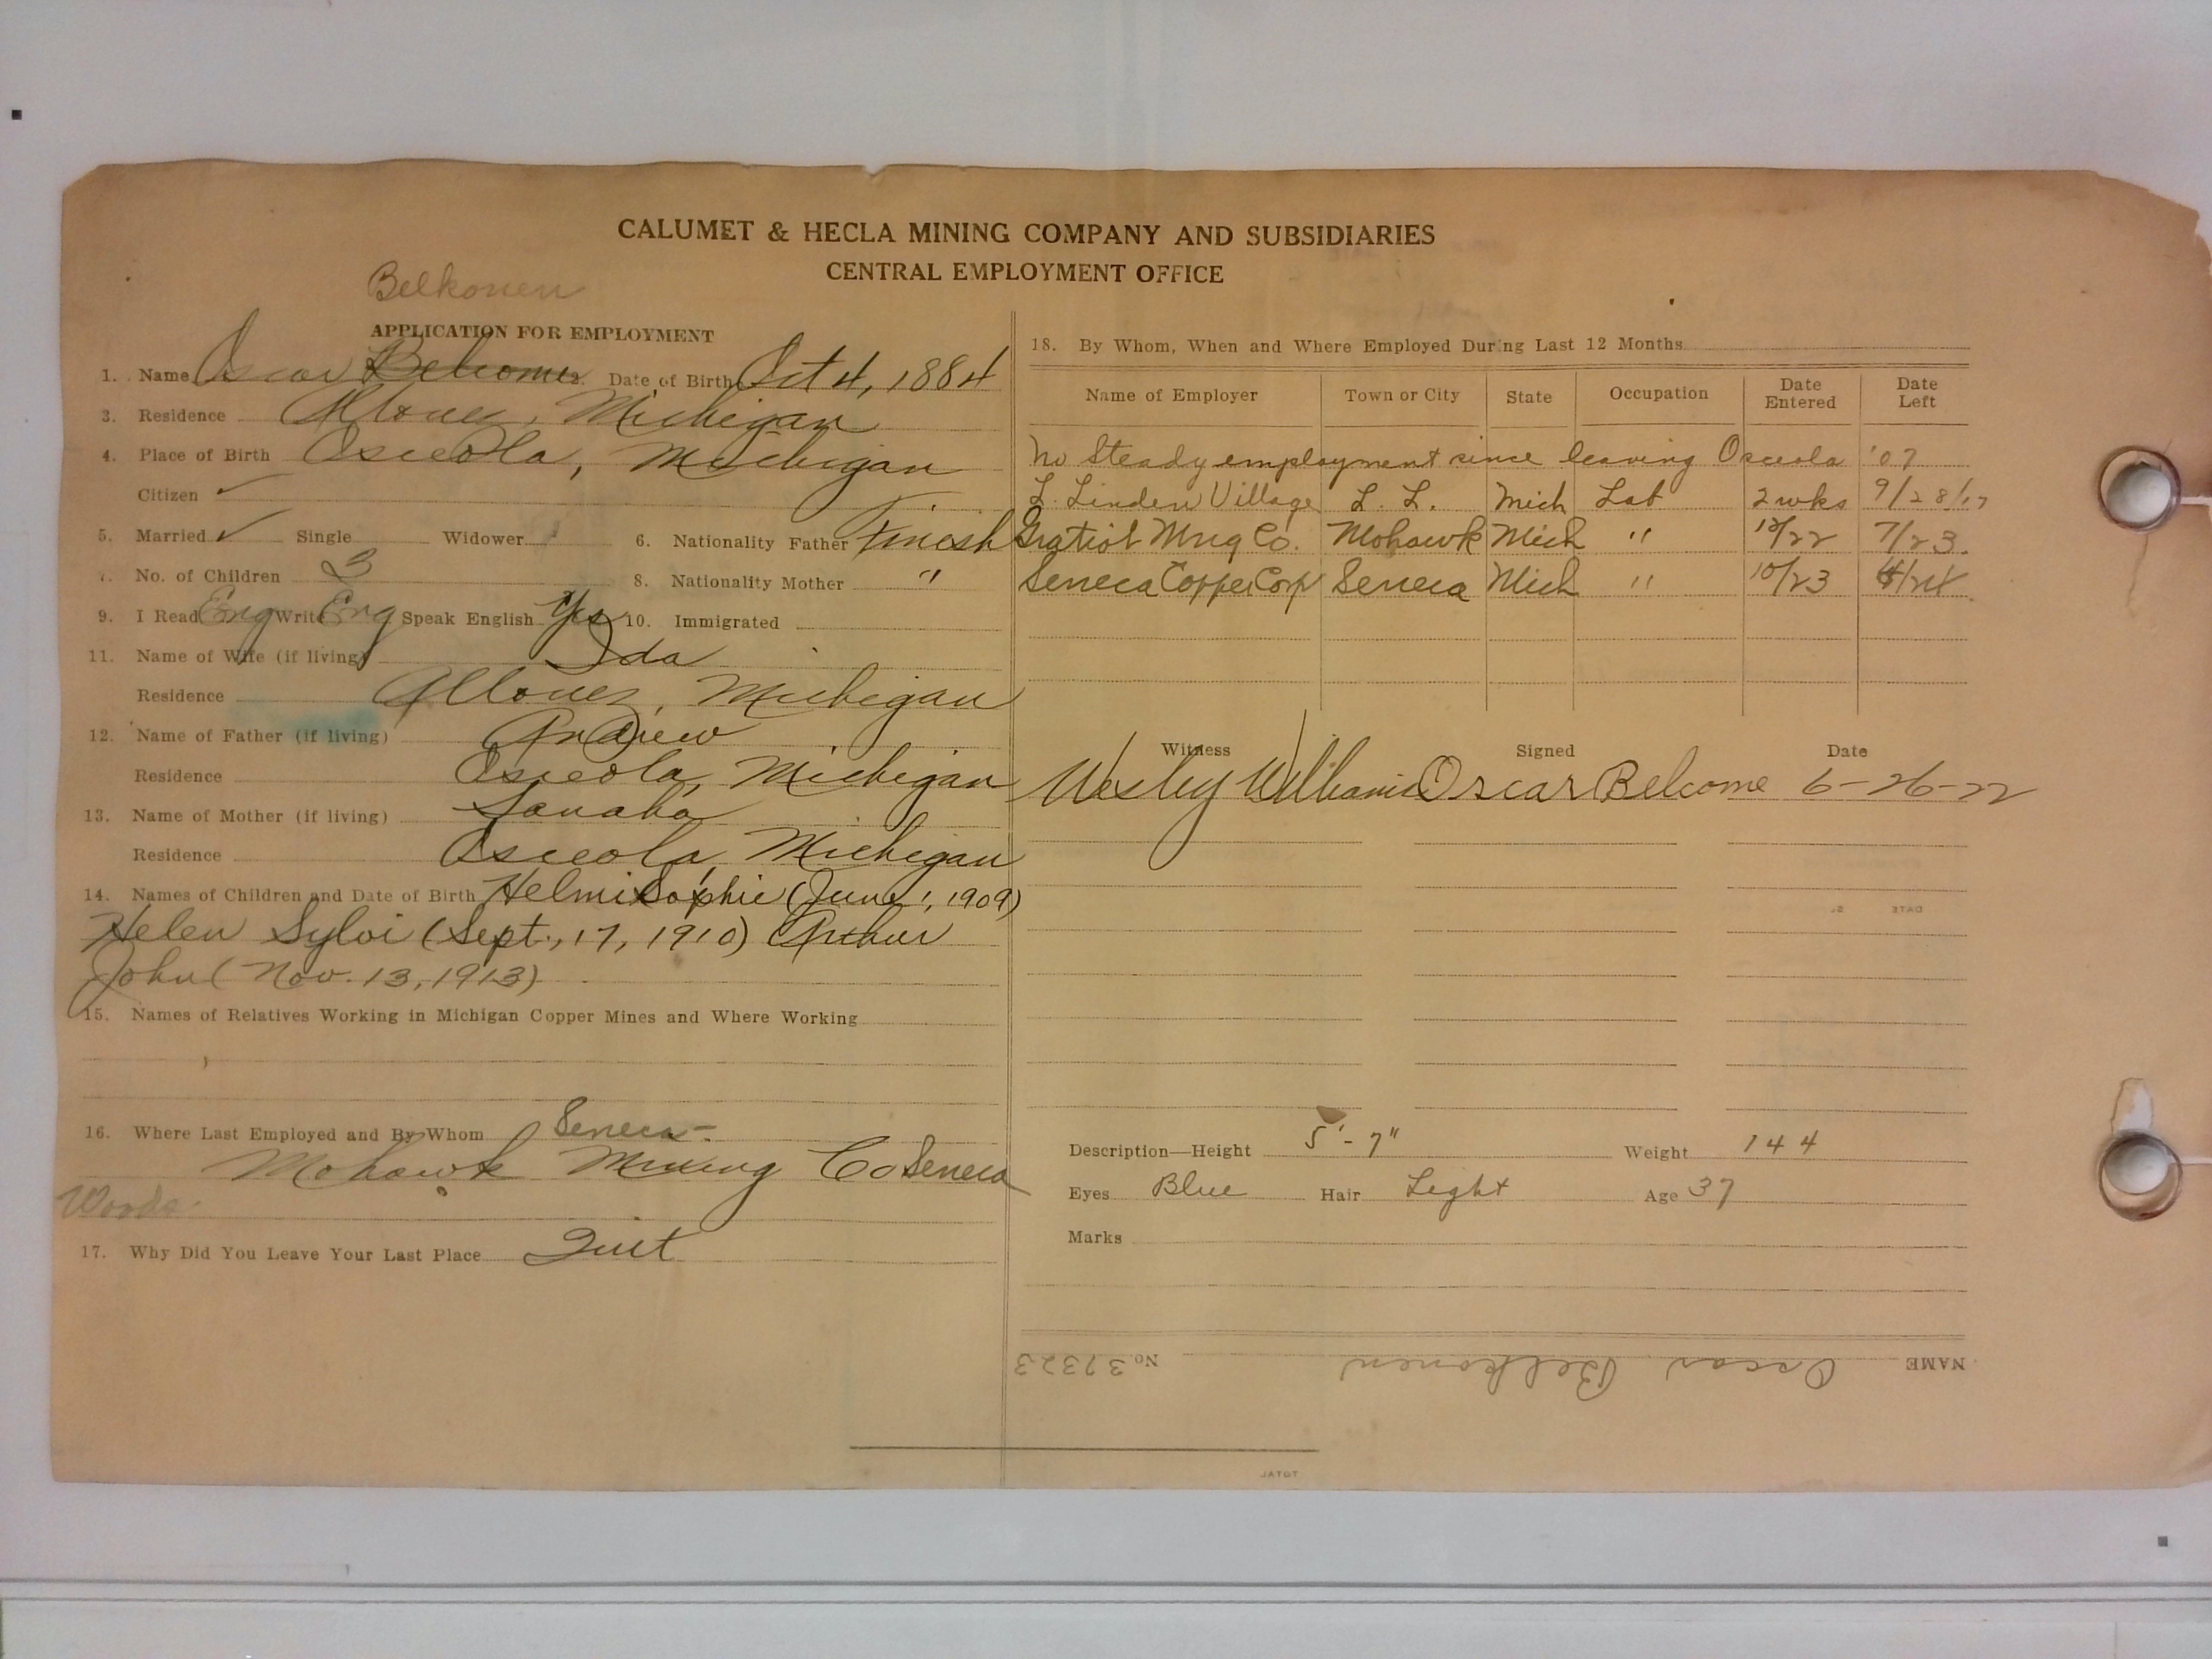 CALUMET & HECLA MINING COMPANY AND SUBSIDIARIES
CENTRAL EMPLOYMENT OFFICE
Belkonen
APPLICATION FOR EMPLOYMENT
1. Name Oscar Belcome 2. Date of Birth Oct 4, 1884
3. Residence Allouez, Michigan
4. Place of Birth Osceola, Michigan
Citizen ✓
5. Married ✓ Single Widower 6. Nationality Father Finish
7. No. of Children 3 8. Nationality Mother "
9. I Read Eng Write Eng Speak English Yes 10. Immigrated
11. Name of Wife (if living) Ida
Residence Allouez, Michigan
12. Name of Father (if living) Andrew
Residence Osceola, Michigan
13. Name of Mother (if living)
Residence Osceola, Michigan
14. Names of Children and Date of Birth Helmi Sophie (June 1, 1909)
Helen Sylvi (Sept., 17, 1910) Arthur
John (Nov. 13, 1913)
15. Names of Relatives Working in Michigan Copper Mines and Where Working
16. Where Last Employed and By Whom Seneca-
Mohawk Mining Co Seneca
Woods.
17. Why Did You Leave Your Last Place Quit
18. By Whom, When and Where Employed During Last 12 Months
Name of Employer Town or City State Occupation Date Entered Date Left
No Steady employment since leaving Osceola '07
L. Linden Village L. L. Mich Lab 2 wks 9/28/17
Gratiot Mng Co. Mohawk Mich " 12/22 7/23.
Seneca Copper Corp Seneca Mich " 10/23 /24
Witness Signed Date
Wesley Williams Oscar Belcome 6-26-22
DATE
Description—Height 5'-7" Weight 144
Eyes Blue Hair Light Age 37
Marks
NAME Oscar Belkonen No. 37323
TOTAL